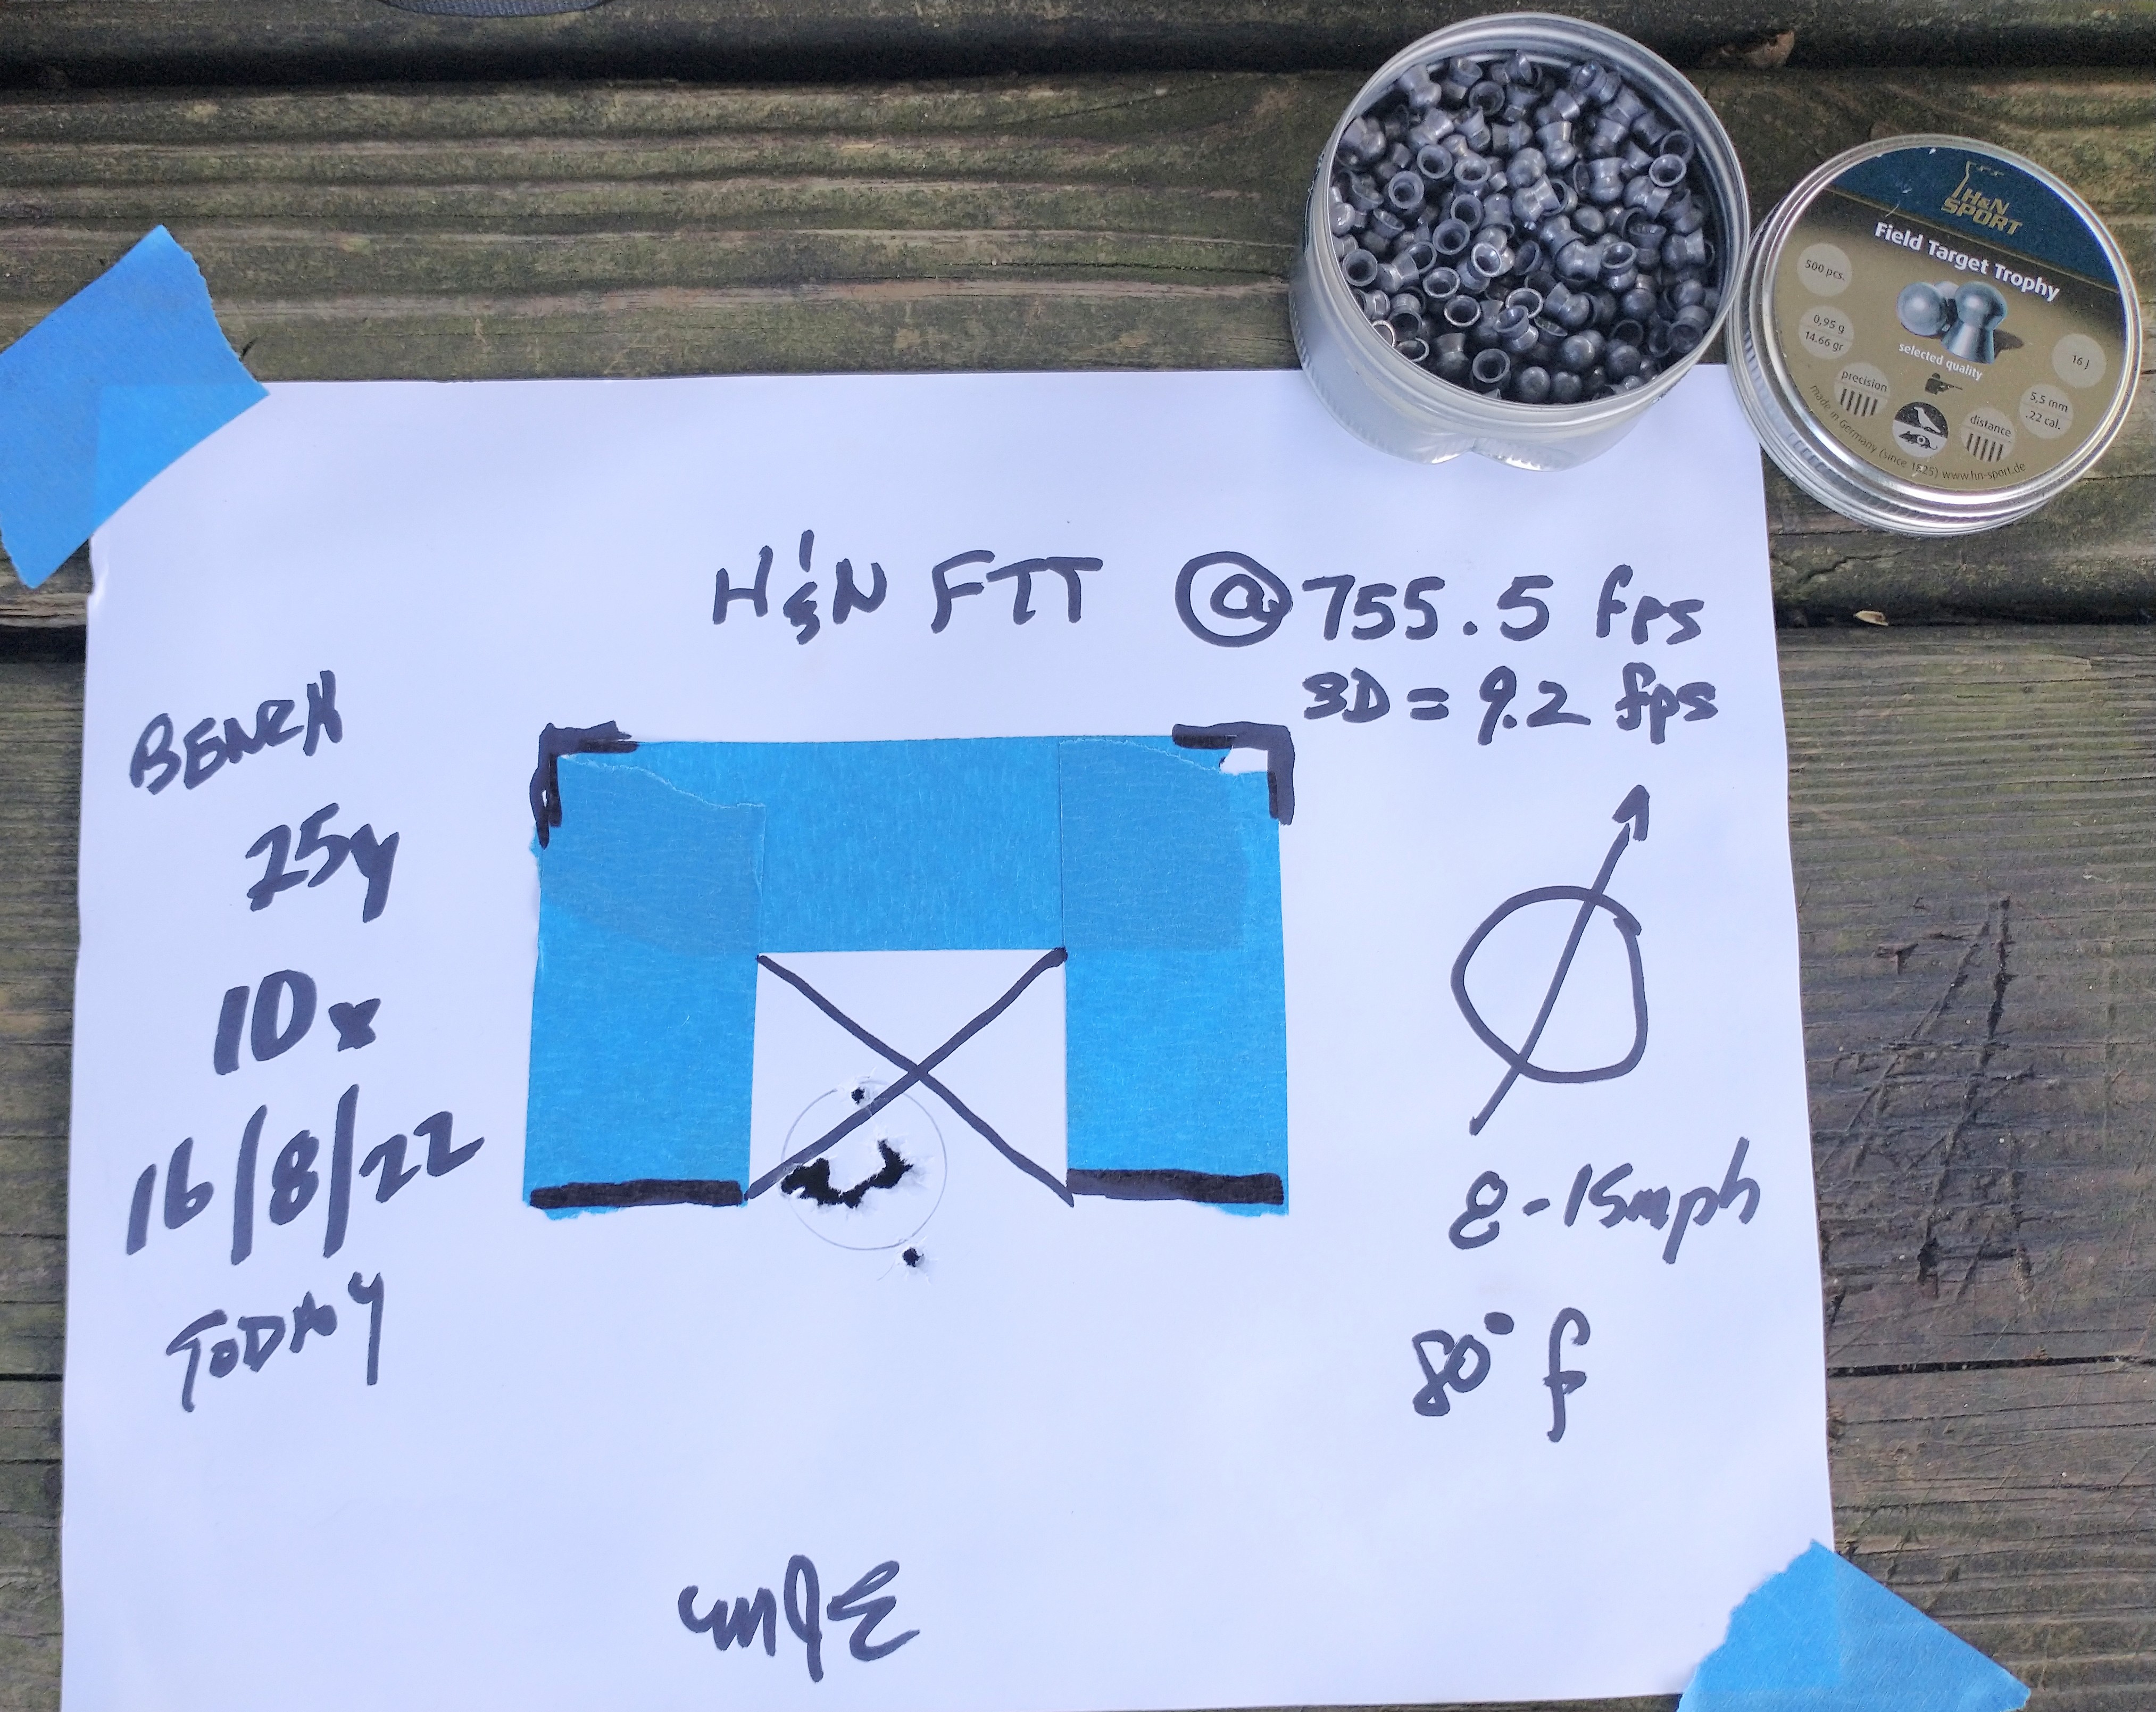 H&N
SPORT
Field Target Trophy
500 pcs.
0,95 g
14.66 gr
selected quality
16 J
precision
5,5 mm
.22 cal.
distance
made in Germany (since 1825) www.hn-sport.de
H&N FTT @ 755.5 fps
SD = 9.2 fps
BENCH
25y
10x
16/8/22
TODAY
8-15mph
80° f